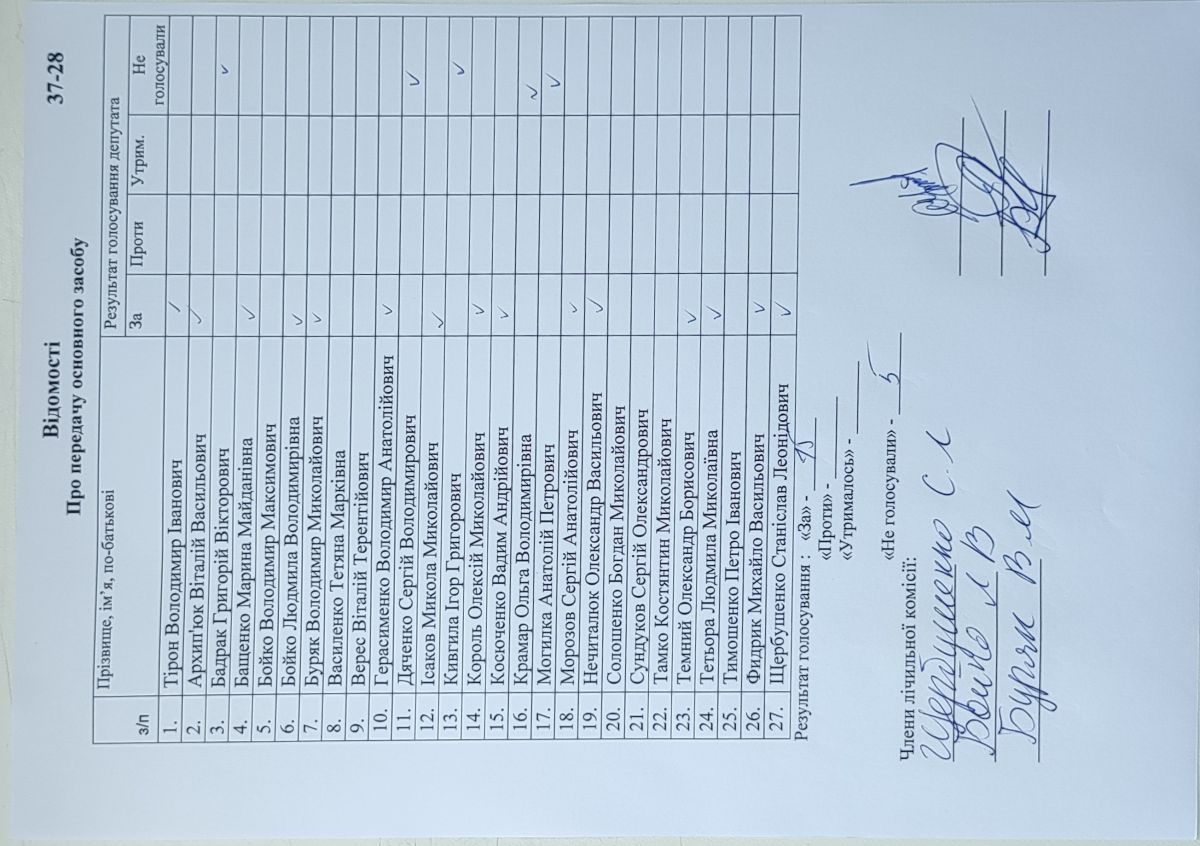 Відомості 37-28
Про передачу основного засобу
з/п Прізвище, ім’я, по-батькові Результат голосування депутата
За Проти Утрим. Не голосували
1. Тірон Володимир Іванович ✓
2. Архип'юк Віталій Васильович ✓
3. Бадрак Григорій Вікторович ✓
4. Бащенко Марина Майданівна ✓
5. Бойко Володимир Максимович
6. Бойко Людмила Володимирівна ✓
7. Буряк Володимир Миколайович ✓
8. Василенко Тетяна Марківна
9. Верес Віталій Терентійович
10. Герасименко Володимир Анатолійович ✓
11. Дяченко Сергій Володимирович ✓
12. Ісаков Микола Миколайович ✓
13. Кивгила Ігор Григорович ✓
14. Король Олексій Миколайович ✓
15. Косюченко Вадим Андрійович ✓
16. Крамар Ольга Володимирівна ✓
17. Могилка Анатолій Петрович ✓
18. Морозов Сергій Анатолійович ✓
19. Нечиталюк Олександр Васильович ✓
20. Солошенко Богдан Миколайович
21. Сундуков Сергій Олександрович
22. Тамко Костянтин Миколайович
23. Темний Олександр Борисович ✓
24. Тетьора Людмила Миколаївна ✓
25. Тимошенко Петро Іванович
26. Фидрик Михайло Васильович ✓
27. Щербушенко Станіслав Леонідович ✓
Результат голосування : «За» - 15
«Проти» -
«Утрималось» -
«Не голосували» - 5
Члени лічильної комісії:
Щербушенко С. Л
Бойко Л В
Буряк В М